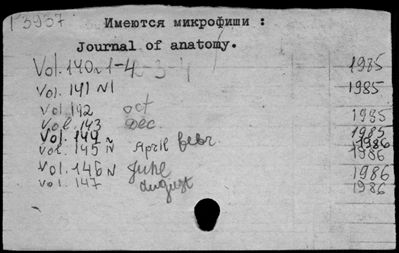 Р3957
Имеются микрофиши :
Journal of anatomy.
Vol. 140 N 1-4 1985
Vol. 141 N1 1985
Vol 142 oct 1985
Vol. 143 Dec. 1985
Vol. 144 N febr. 1986
Vol. 145 N April 1986
Vol. 146 N June 1986
Vol. 147 august 1986